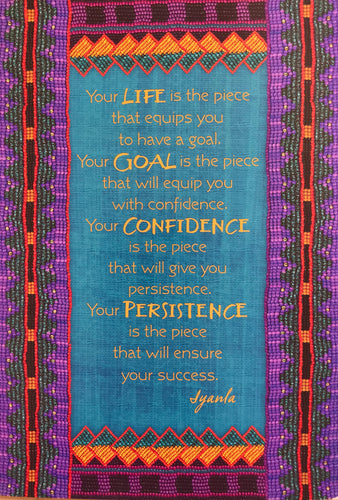 Your LIFE is the piece
that equips you
to have a goal.
Your GOAL is the piece
that will equip you
with confidence.
Your CONFIDENCE
is the piece
that will give you
persistence.
Your PERSISTENCE
is the piece
that will ensure
your success.
Iyanla